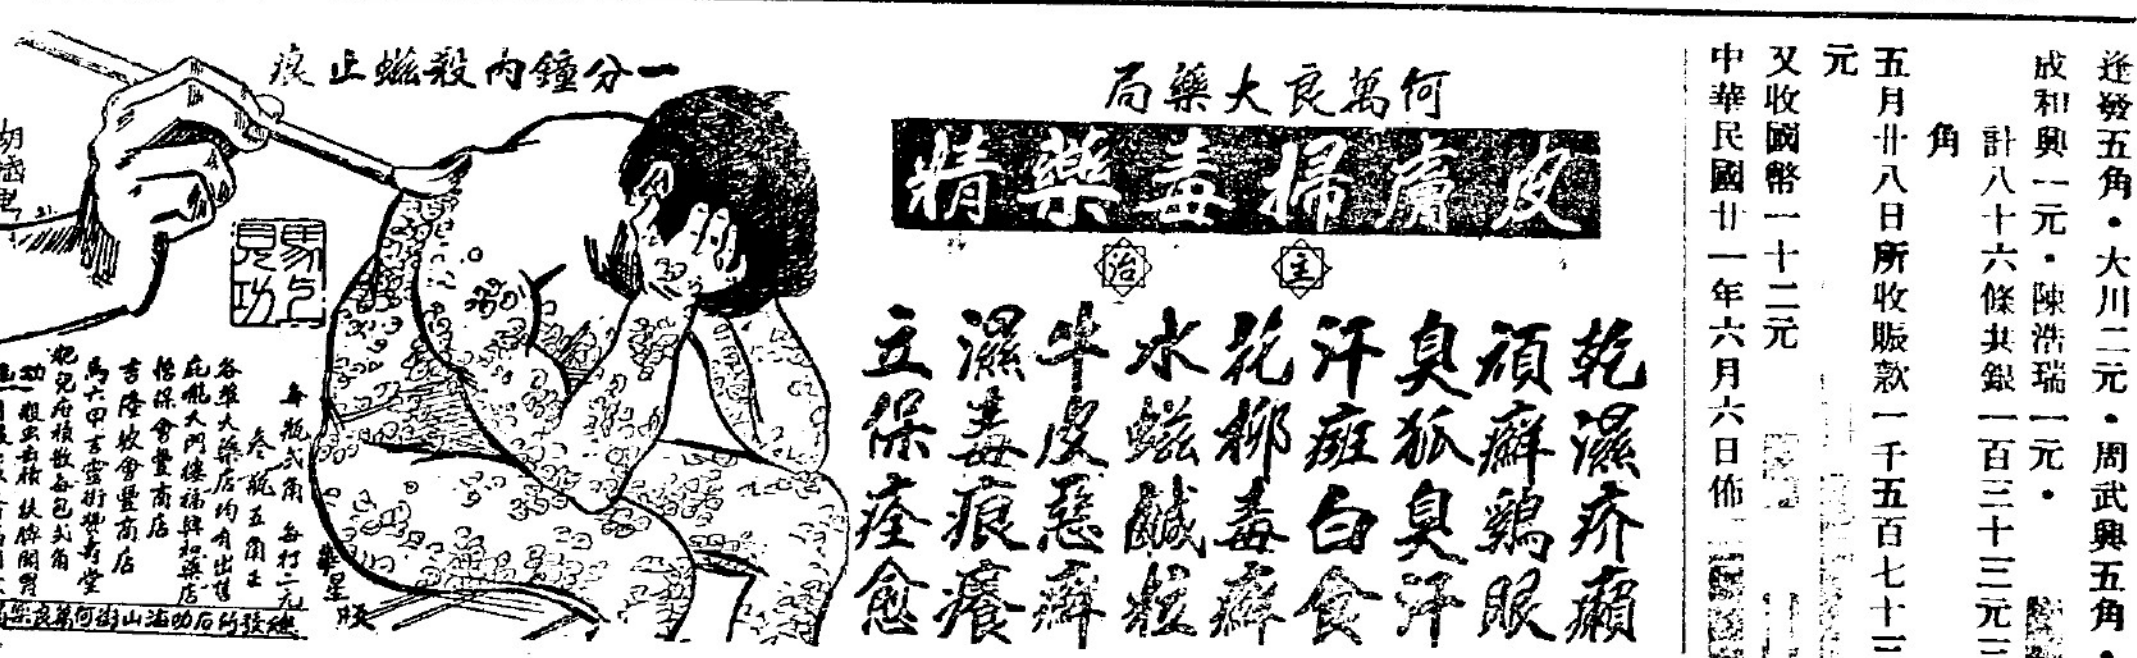 逢發五角·大川二元·周武興五角·
成和興一元·陳浩瑞一元·
計八十六條共銀一百三十三元三
角
五月廿八日所收賑款一千五百七十三
元
又收國幣一十二元
中華民國廿一年六月六日佈
何萬良大藥局
皮膚掃毒藥精
主治
乾濕疥癩
頑癬鷄眼
臭狐臭汗
汗斑白食
花柳毒癬
水螆鹹粒
牛皮惡癬
濕毒痕癢
立保痊愈
一分鐘內殺螆止痕
馬上見功
每瓶弍角 每打二元
叁瓶五角正
各埠大藥店均有出售
庇能大門樓福興和藥店
怡保會豐商店
吉隆坡會豐商店
馬六甲吉靈街贊壽堂